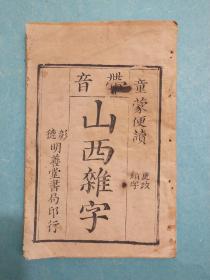 音
童蒙便讀
更改
山西雜字
彰德
明善堂書局印行